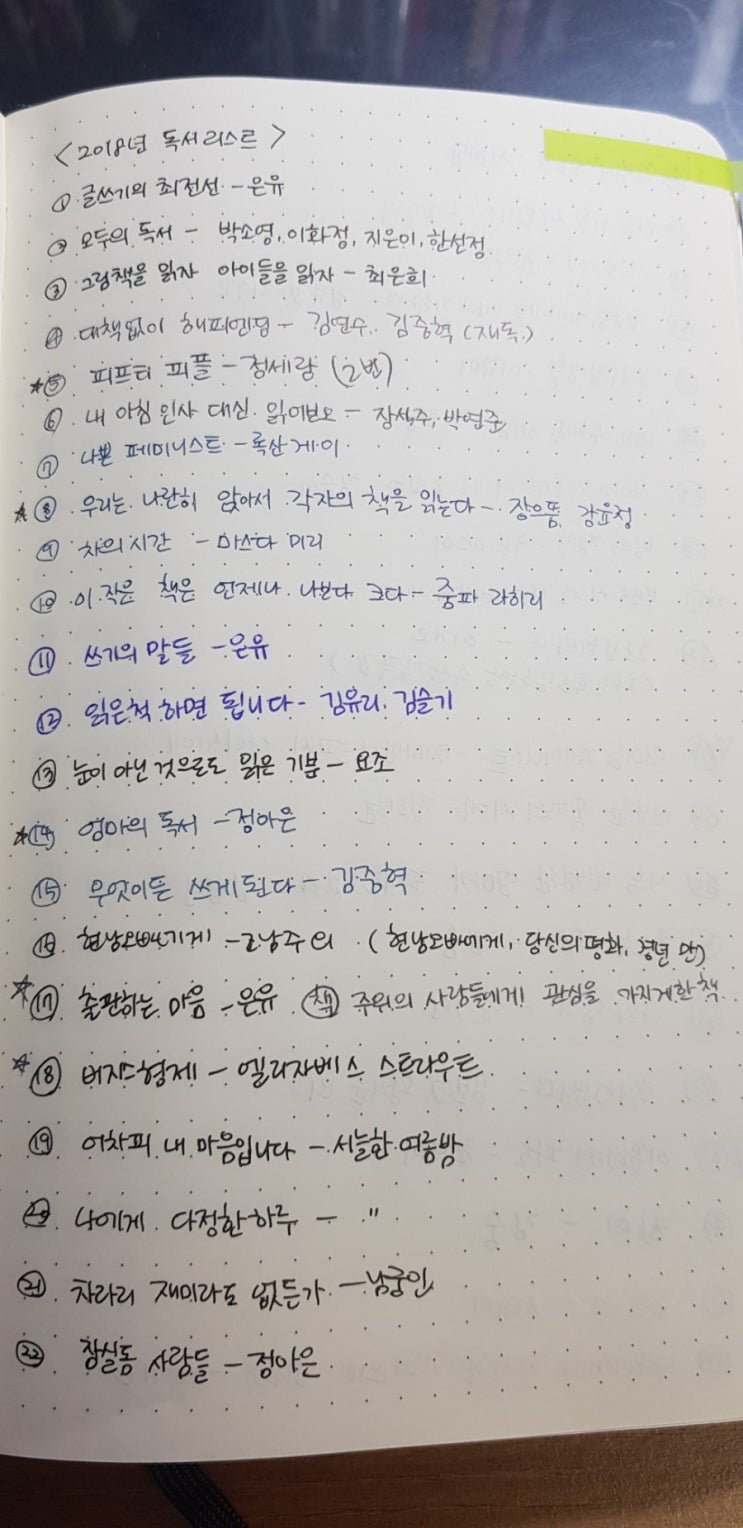 <2018년 독서리스트>
① 글쓰기의 최전선 - 은유
② 모두의 독서 - 박소영, 이화정, 지은이, 한선정
③ 그림책을 읽자 아이들을 읽자 - 최은희
④ 대책없이 해피엔딩 - 김연수, 김중혁 (재독)
☆⑤ 피프티 피플 - 정세랑 (2번)
⑥ 내 아침 인사 대신 읽어보오 - 장석주, 박연준
⑦ 나쁜 페미니스트 - 록산 게이
☆⑧ 우리는 나란히 앉아서 각자의 책을 읽는다 - 장으뜸, 강윤정
⑨ 차의 시간 - 마스다 미리
⑩ 이 작은 책은 언제나 나보다 크다 - 줌파 라히리
⑪ 쓰기의 말들 - 은유
⑫ 읽은척 하면 됩니다 - 김유리, 김슬기
⑬ 눈이 아닌 것으로도 읽은 기분 - 요조
☆⑭ 엄마의 독서 - 정아은
⑮ 무엇이든 쓰게 된다 - 김중혁
⑯ 현남오빠에게 - 조남주 외 (현남오빠에게, 당신의 평화, 경년 만)
☆⑰ 출판하는 마음 - 은유 (책) 주위의 사람들에게! 관심을 가지게한 책
☆⑱ 버지스형제 - 엘리자베스 스트라우트
⑲ 어차피 내 마음입니다 - 서늘한여름밤
⑳ 나에게 다정한하루 - "
㉑ 차라리 재미라도 없든가 - 남궁인
㉒ 잠실동 사람들 - 정아은